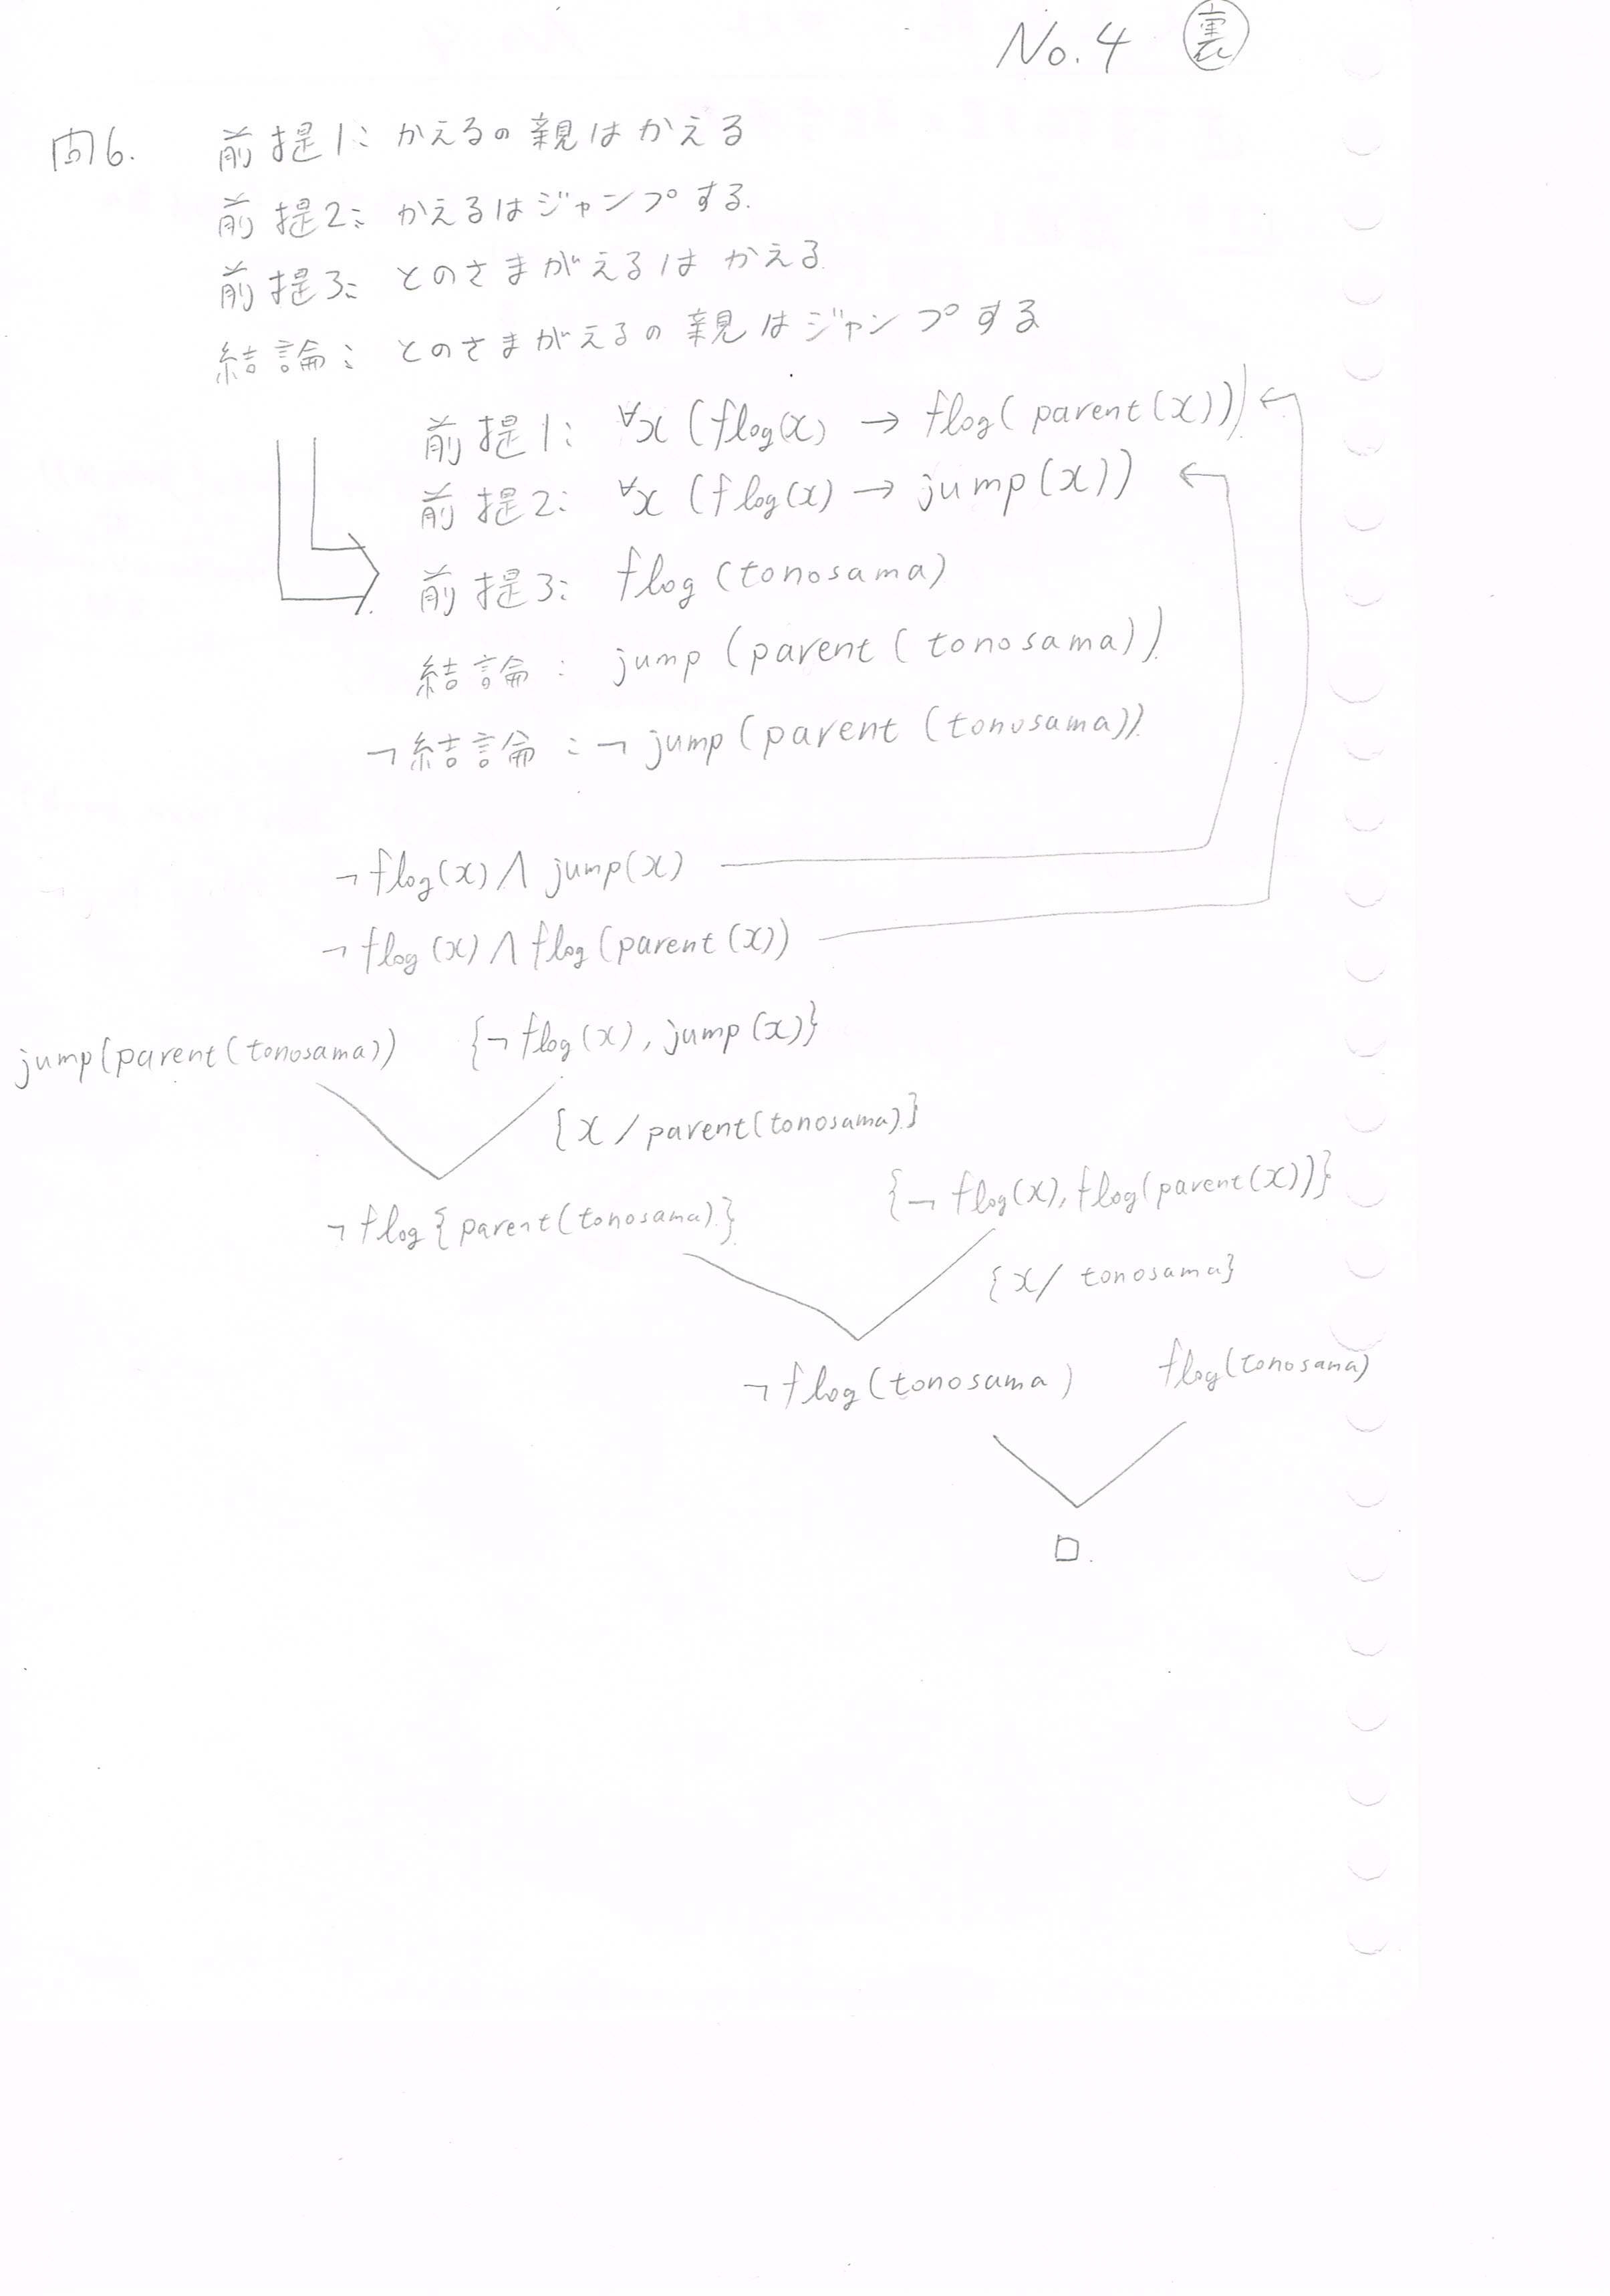 No.4 裏
問6. 前提1: かえるの親はかえる
前提2: かえるはジャンプする.
前提3: とのさまがえるはかえる.
結論: とのさまがえるの親はジャンプする
前提1: ∀x (flog(x) → flog(parent(x)))
前提2: ∀x (flog(x) → jump(x))
前提3: flog(tonosama)
結論: jump(parent(tonosama)).
¬結論: ¬jump(parent(tonosama)).
¬flog(x) ∧ jump(x)
¬flog(x) ∧ flog(parent(x))
jump(parent(tonosama)) {¬flog(x), jump(x)}
{x / parent(tonosama)}
¬flog{parent(tonosama)} {¬flog(x), flog(parent(x))}
{x / tonosama}
¬flog(tonosama) flog(tonosama)
□.